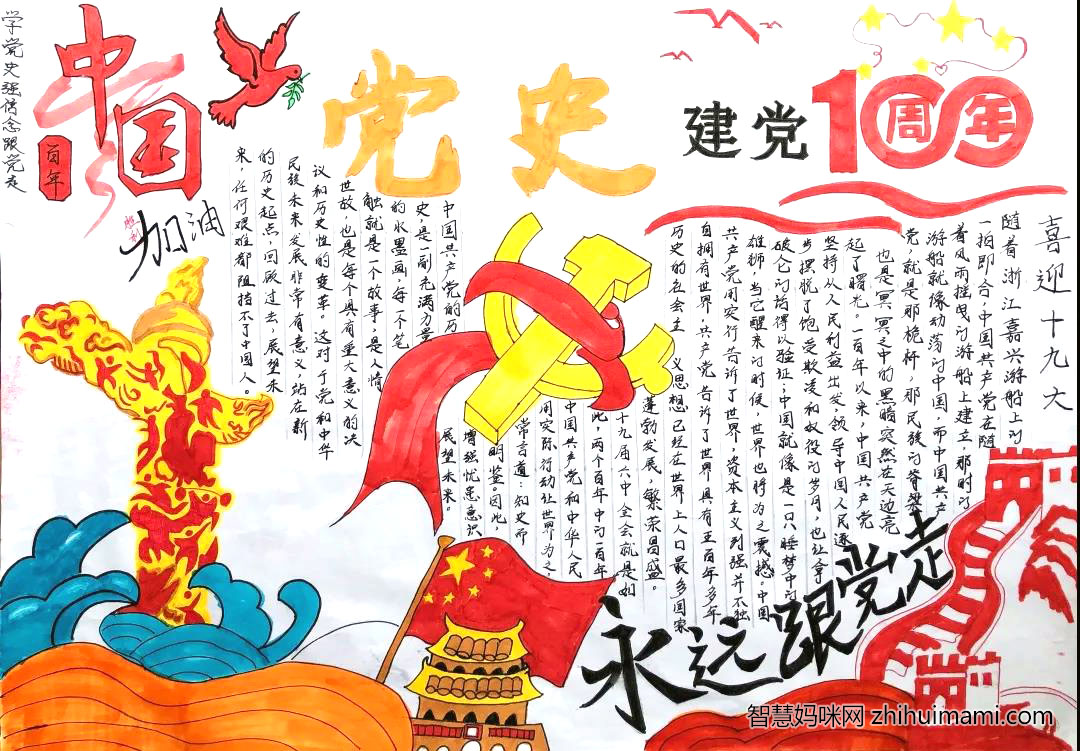 学党史强信念跟党走
中国
百年
胜利
加油
党史
建党100周年
喜迎十九大
随着浙江嘉兴游船上的
一拍即合，中国共产党在随
着风雨摇曳的游船上建立，那时的
游船就像动荡的中国，而中国共产
党就是那桅杆，那民族的脊梁
也是冥冥之中的黑暗突然在天边亮
起了曙光。一百年以来，中国共产党
坚持从人民利益出发，领导中国人民逐
步摆脱了饱受欺凌和奴役的岁月，也让拿
破仑的话得以验证；中国就像是一只睡梦中的
雄狮，当它醒来的时候，世界也将为之震撼。中国
共产党用实行告诉了世界，资本主义列强并不独
自拥有世界，共产党告诉了世界具有五百年多年
历史的社会主义思想已经在世界上人口最多国家
蓬勃发展，繁荣昌盛。
十九届六中全会就是如
此，两个百年中的百年
中国共产党和中华人民
用实际行动让世界为之
常言道：知史而
明鉴。因此，
增强忧患意识
展望未来。
中国共产党的历
史是一副充满力量
的水墨画，每一个笔
触就是一个故事，是人情
世故，也是每个具有重大意义的决
议和历史性的变革。这对于党和中华
民族未来发展非常有意义，站在新
的历史起点，回顾过去，展望未
来，任何艰难都阻挡不了中国人。
永远跟党走
智慧妈咪网 zhihuimami.com